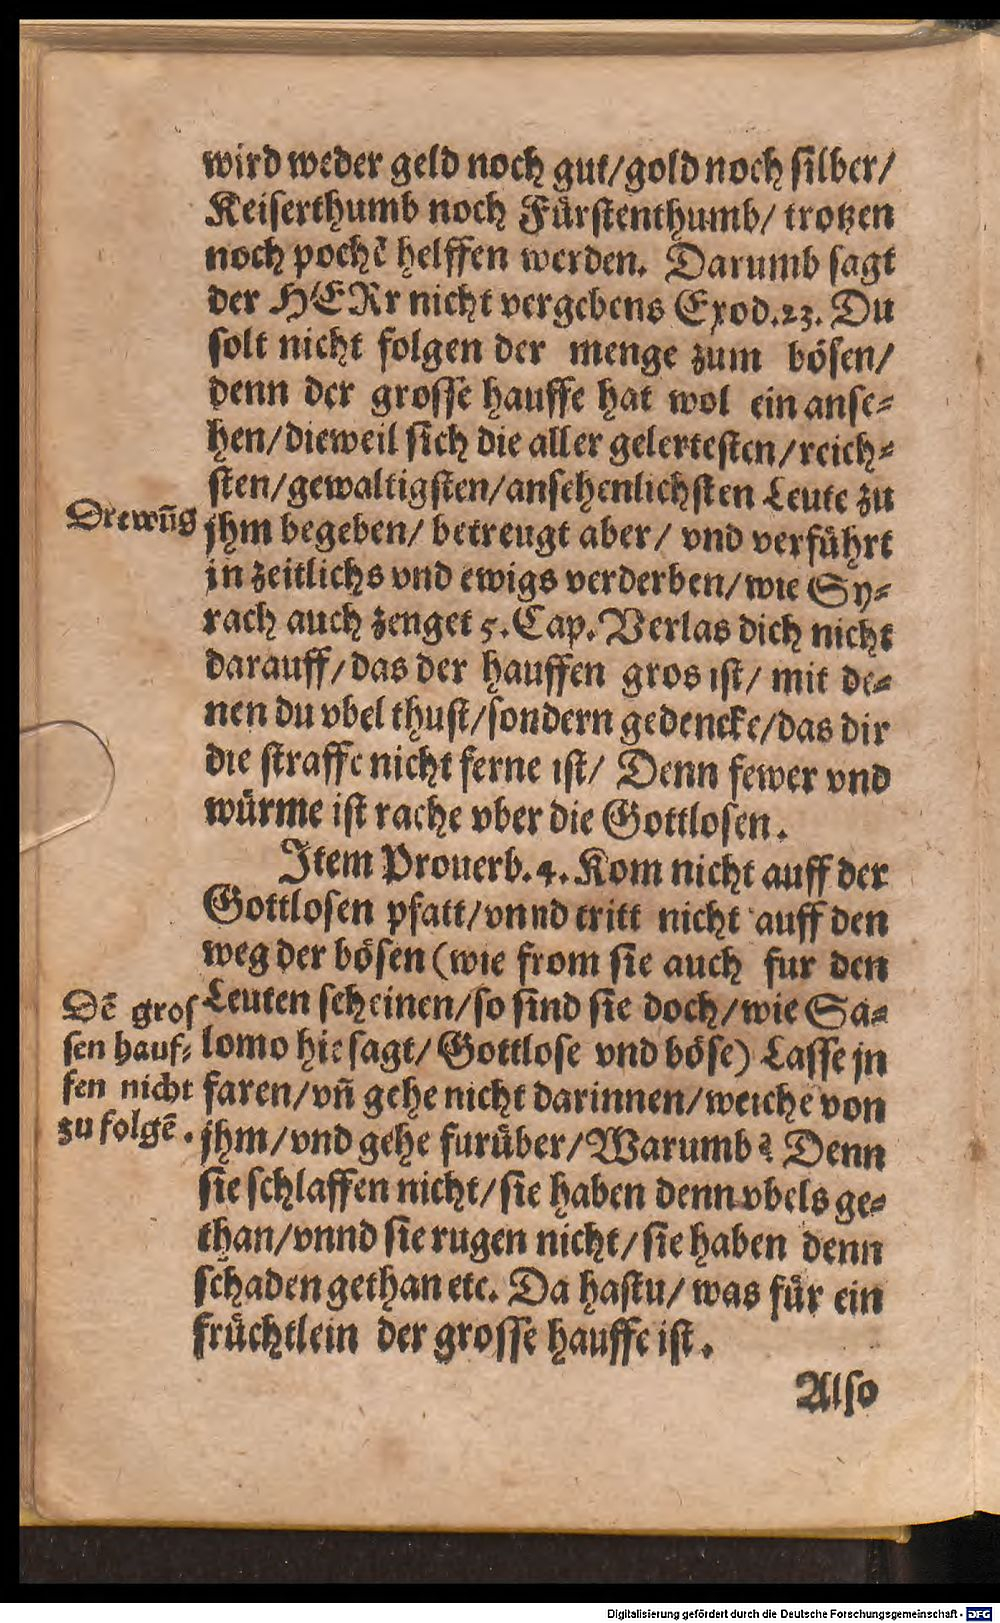 wird weder geld noch gut/gold noch silber/
Keiserthumb noch Fürstenthumb/ trotzen
noch pochē helffen werden. Darumb sagt
der HERr nicht vergebens Exod.23. Du
solt nicht folgen der menge zum bösen/
denn der grosse hauffe hat wol ein anse-
hen/dieweil sich die aller gelertesten/reich-
sten/gewaltigsten/ansehenlichsten Leute zu
Drewūg
jhm begeben/ betreugt aber/ vnd verführt
in zeitlichs vnd ewigs verderben/wie Sy-
rach auch zenget 5. Cap. Verlas dich nicht
darauff/das der hauffen gros ist/ mit de-
nen du vbel thust/sondern gedencke/das dir
die straffe nicht ferne ist/ Denn fewer vnd
würme ist rache vber die Gottlosen.
Item Prouerb. 4. Kom nicht auff der
Gottlosen pfatt/vnnd tritt nicht auff den
weg der bösen (wie from sie auch fur den
Leuten scheinen/so sind sie doch/wie Sa-
lomo hie sagt/ Gottlose vnd böse) Lasse jn
faren/vn̄ gehe nicht darinnen/weiche von
jhm/vnd gehe furüber/Warumb? Denn
Dē gros
sen hauf-
fen nicht
zu folgē.
sie schlaffen nicht/sie haben denn vbels ge-
than/vnnd sie rugen nicht/sie haben denn
schaden gethan etc. Da hastu/ was für ein
früchtlein der grosse hauffe ist.
Also
Digitalisierung gefördert durch die Deutsche Forschungsgemeinschaft - DFG